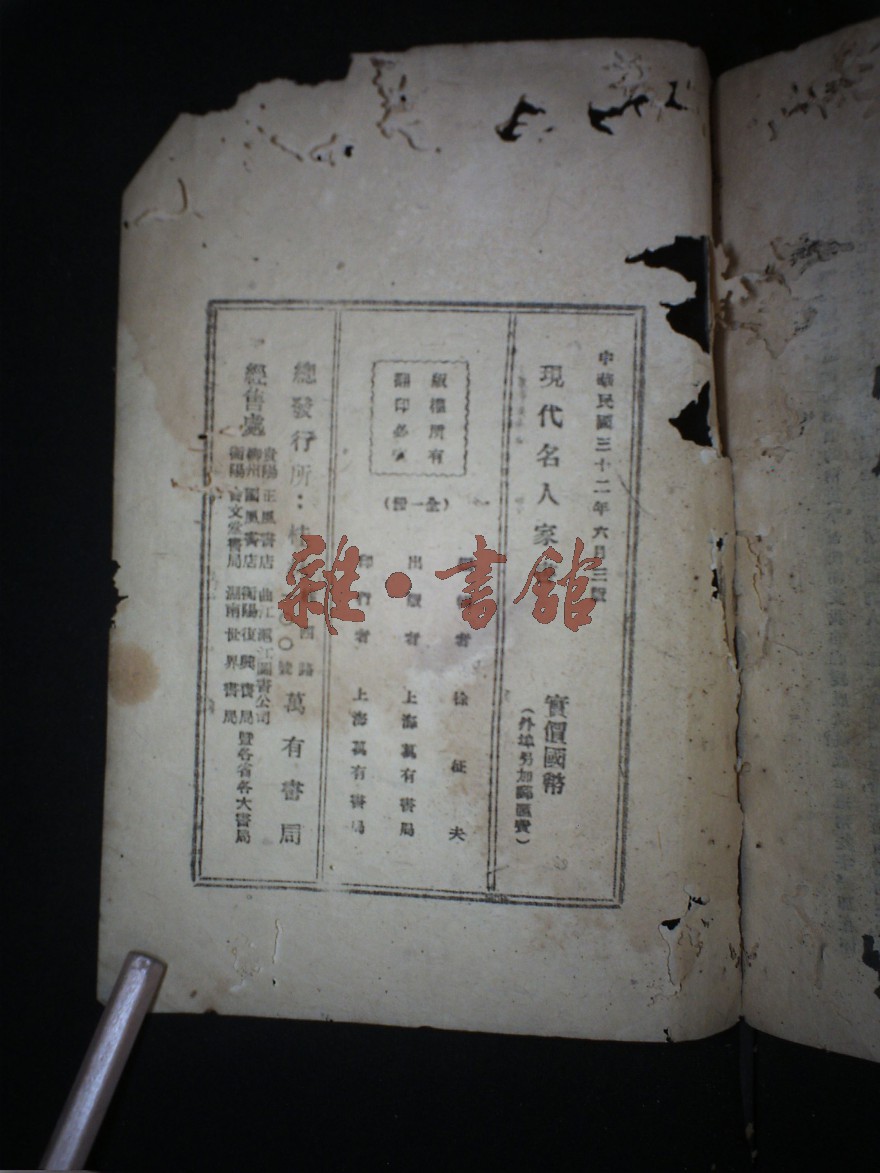 中華民國三十二年六月三版
現代名人家
實價國幣
（外埠另加郵匯費）
版權所有
翻印必究
（全一冊）
者 徐征夫
出版者 上海萬有書局
印行者 上海萬有書局
總發行所：桂 西路 〇號 萬有書局
經售處
貴陽正風書店 曲江 江圖書公司
柳州國風書店 衡陽復興書局
衡陽 文堂書局 湖南世界書局
暨各省各大書局
雜·書館